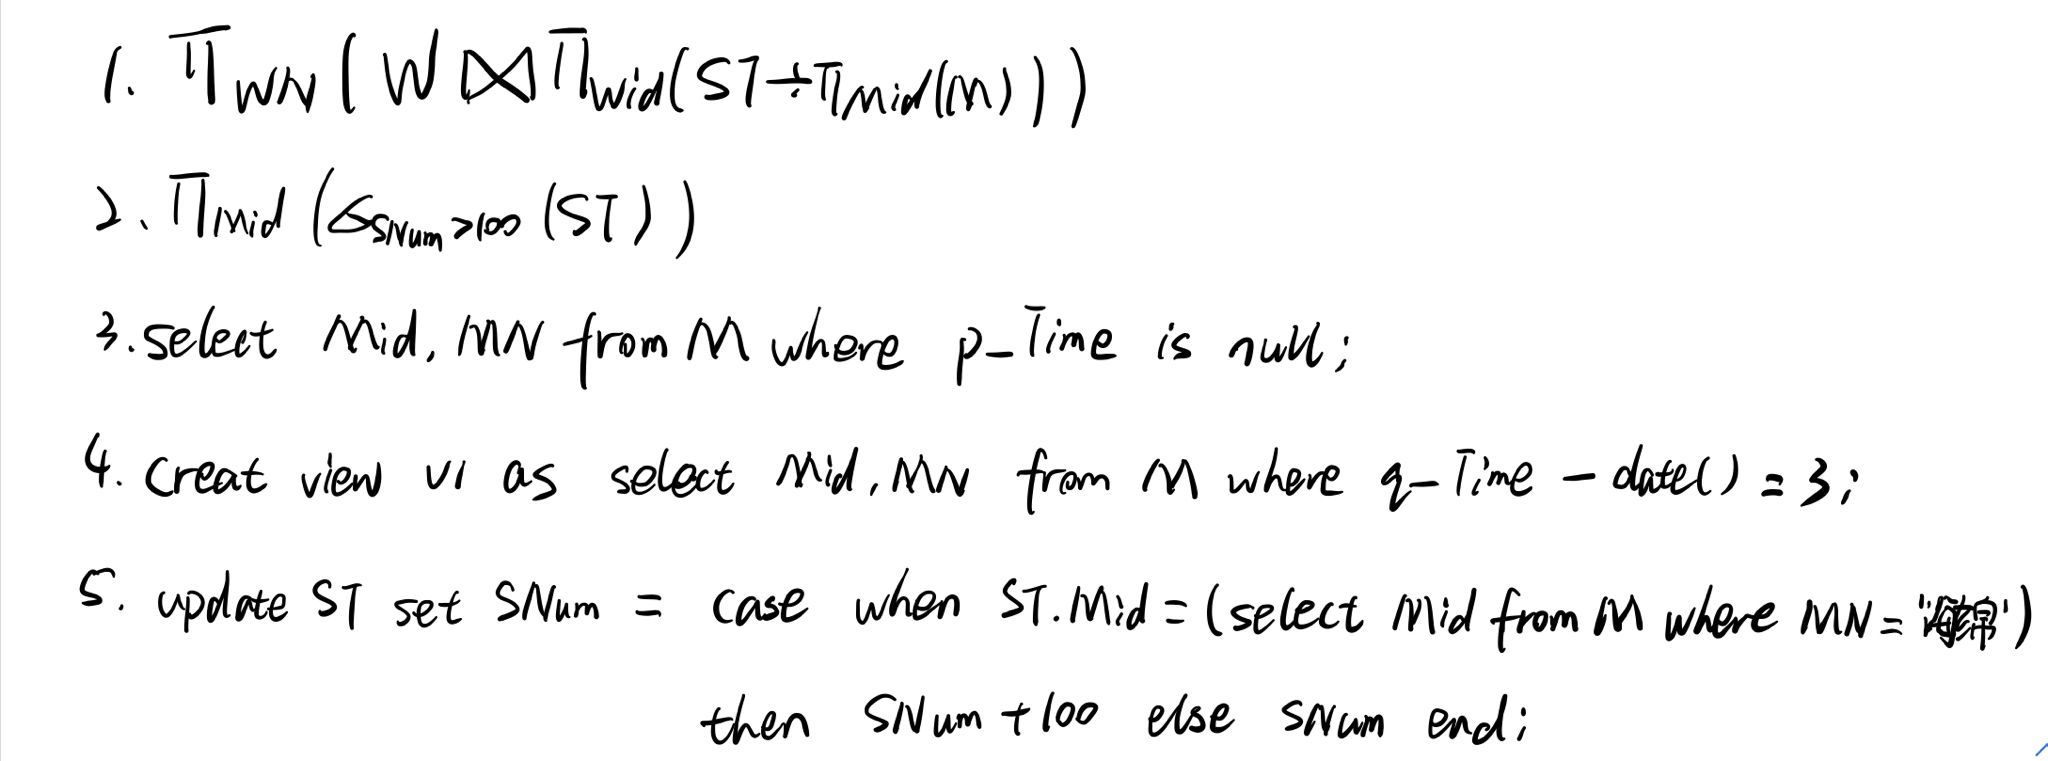 1. Π_WN ( W ⋈ Π_Wid ( ST ÷ Π_Mid(M) ) )
2. Π_Mid ( σ_SNum>100 (ST) )
3. select Mid, MN from M where p_Time is null;
4. Creat view V1 as select Mid, MN from M where q_Time - date() = 3;
5. update ST set SNum = case when ST.Mid = (select Mid from M where MN = '')
then SNum + 100 else SNum end;